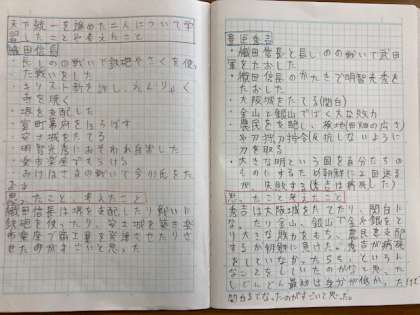 天下統一を進めた二人について学
習したことや考えたこと
織田信長
・長しのの戦いで鉄砲やさくを使っ
た戦いをした
・キリスト新を許し、えんりゃく
寺を焼く
・堺を支配した
・室町幕府をほろぼす
・安土城をたてる
・明智光秀におそわれ自害した
・楽市楽座でもうける
・おけはざまの戦いで今川氏をた
おす
思ったこと、考えたこと
織田信長は堺を支配したり戦いに
鉄砲を使ったり、安土城を築き楽
市楽座で商工業を発達させたりさ
せたのがすごいと思った。
豊臣秀吉
・織田信長と長しのの戦いで武田
軍をたおした
・織田信長のかたきで明智光秀を
たおした
・大阪城をたてる(関白)
・金山と銀山でばく大な財力
・農民を支配し、検地(田畑の広さ)
や刀狩
刀を取る
・大きな明という国を自分たちの
ものにするため朝鮮に2回送る
が、失敗する(秀吉は病死した)
思ったこと考えたこと
秀吉は大阪城をたてたり、関白に
なったり金山、銀山で金や銀をと
り大きな財力をもち、農民を支配
するが朝鮮に負けた。秀吉が病死
をしていなかったら、
なことをしていたのかなと思った。
しかしどんどん最初は身分が低かったけど
関白までなったのがすごいと思った。